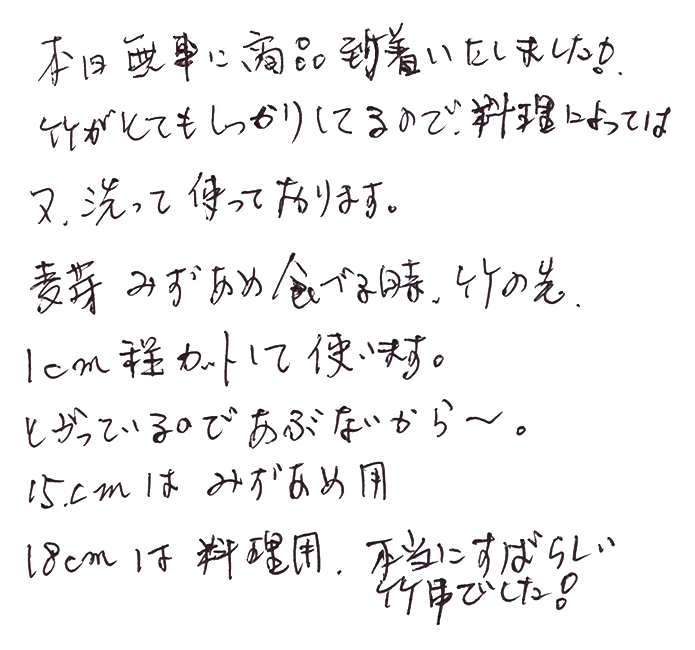 本日無事に商品到着いたしました!.
竹がとてもしっかりしてるので、料理によっては
又、洗って使っております。
麦芽みずあめ食べる時、竹の先、
1cm程カットして使います。
とがっているのであぶないから〜。
15cmはみずあめ用
18cmは料理用、本当にすばらしい
竹串でした!